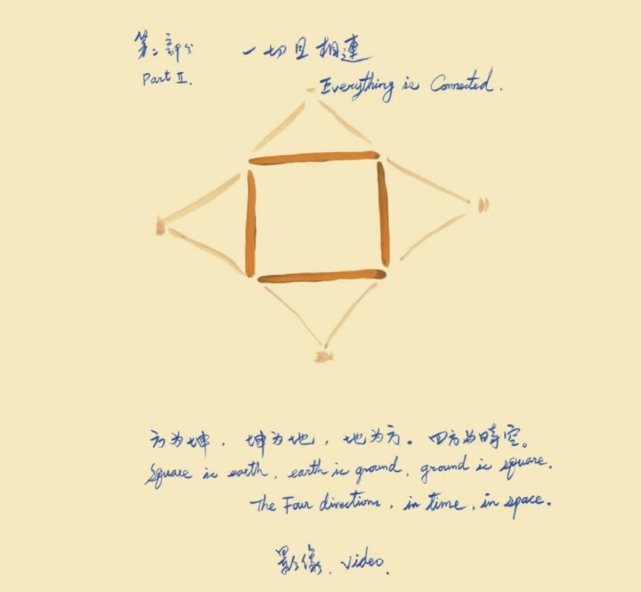 第二部分 一切且相連
Part II.
Everything is Connected.
方为坤，坤为地，地为方。四方为時空。
Square is earth, earth is ground, ground is square.
The Four directions, in time, in space.
影像、video.